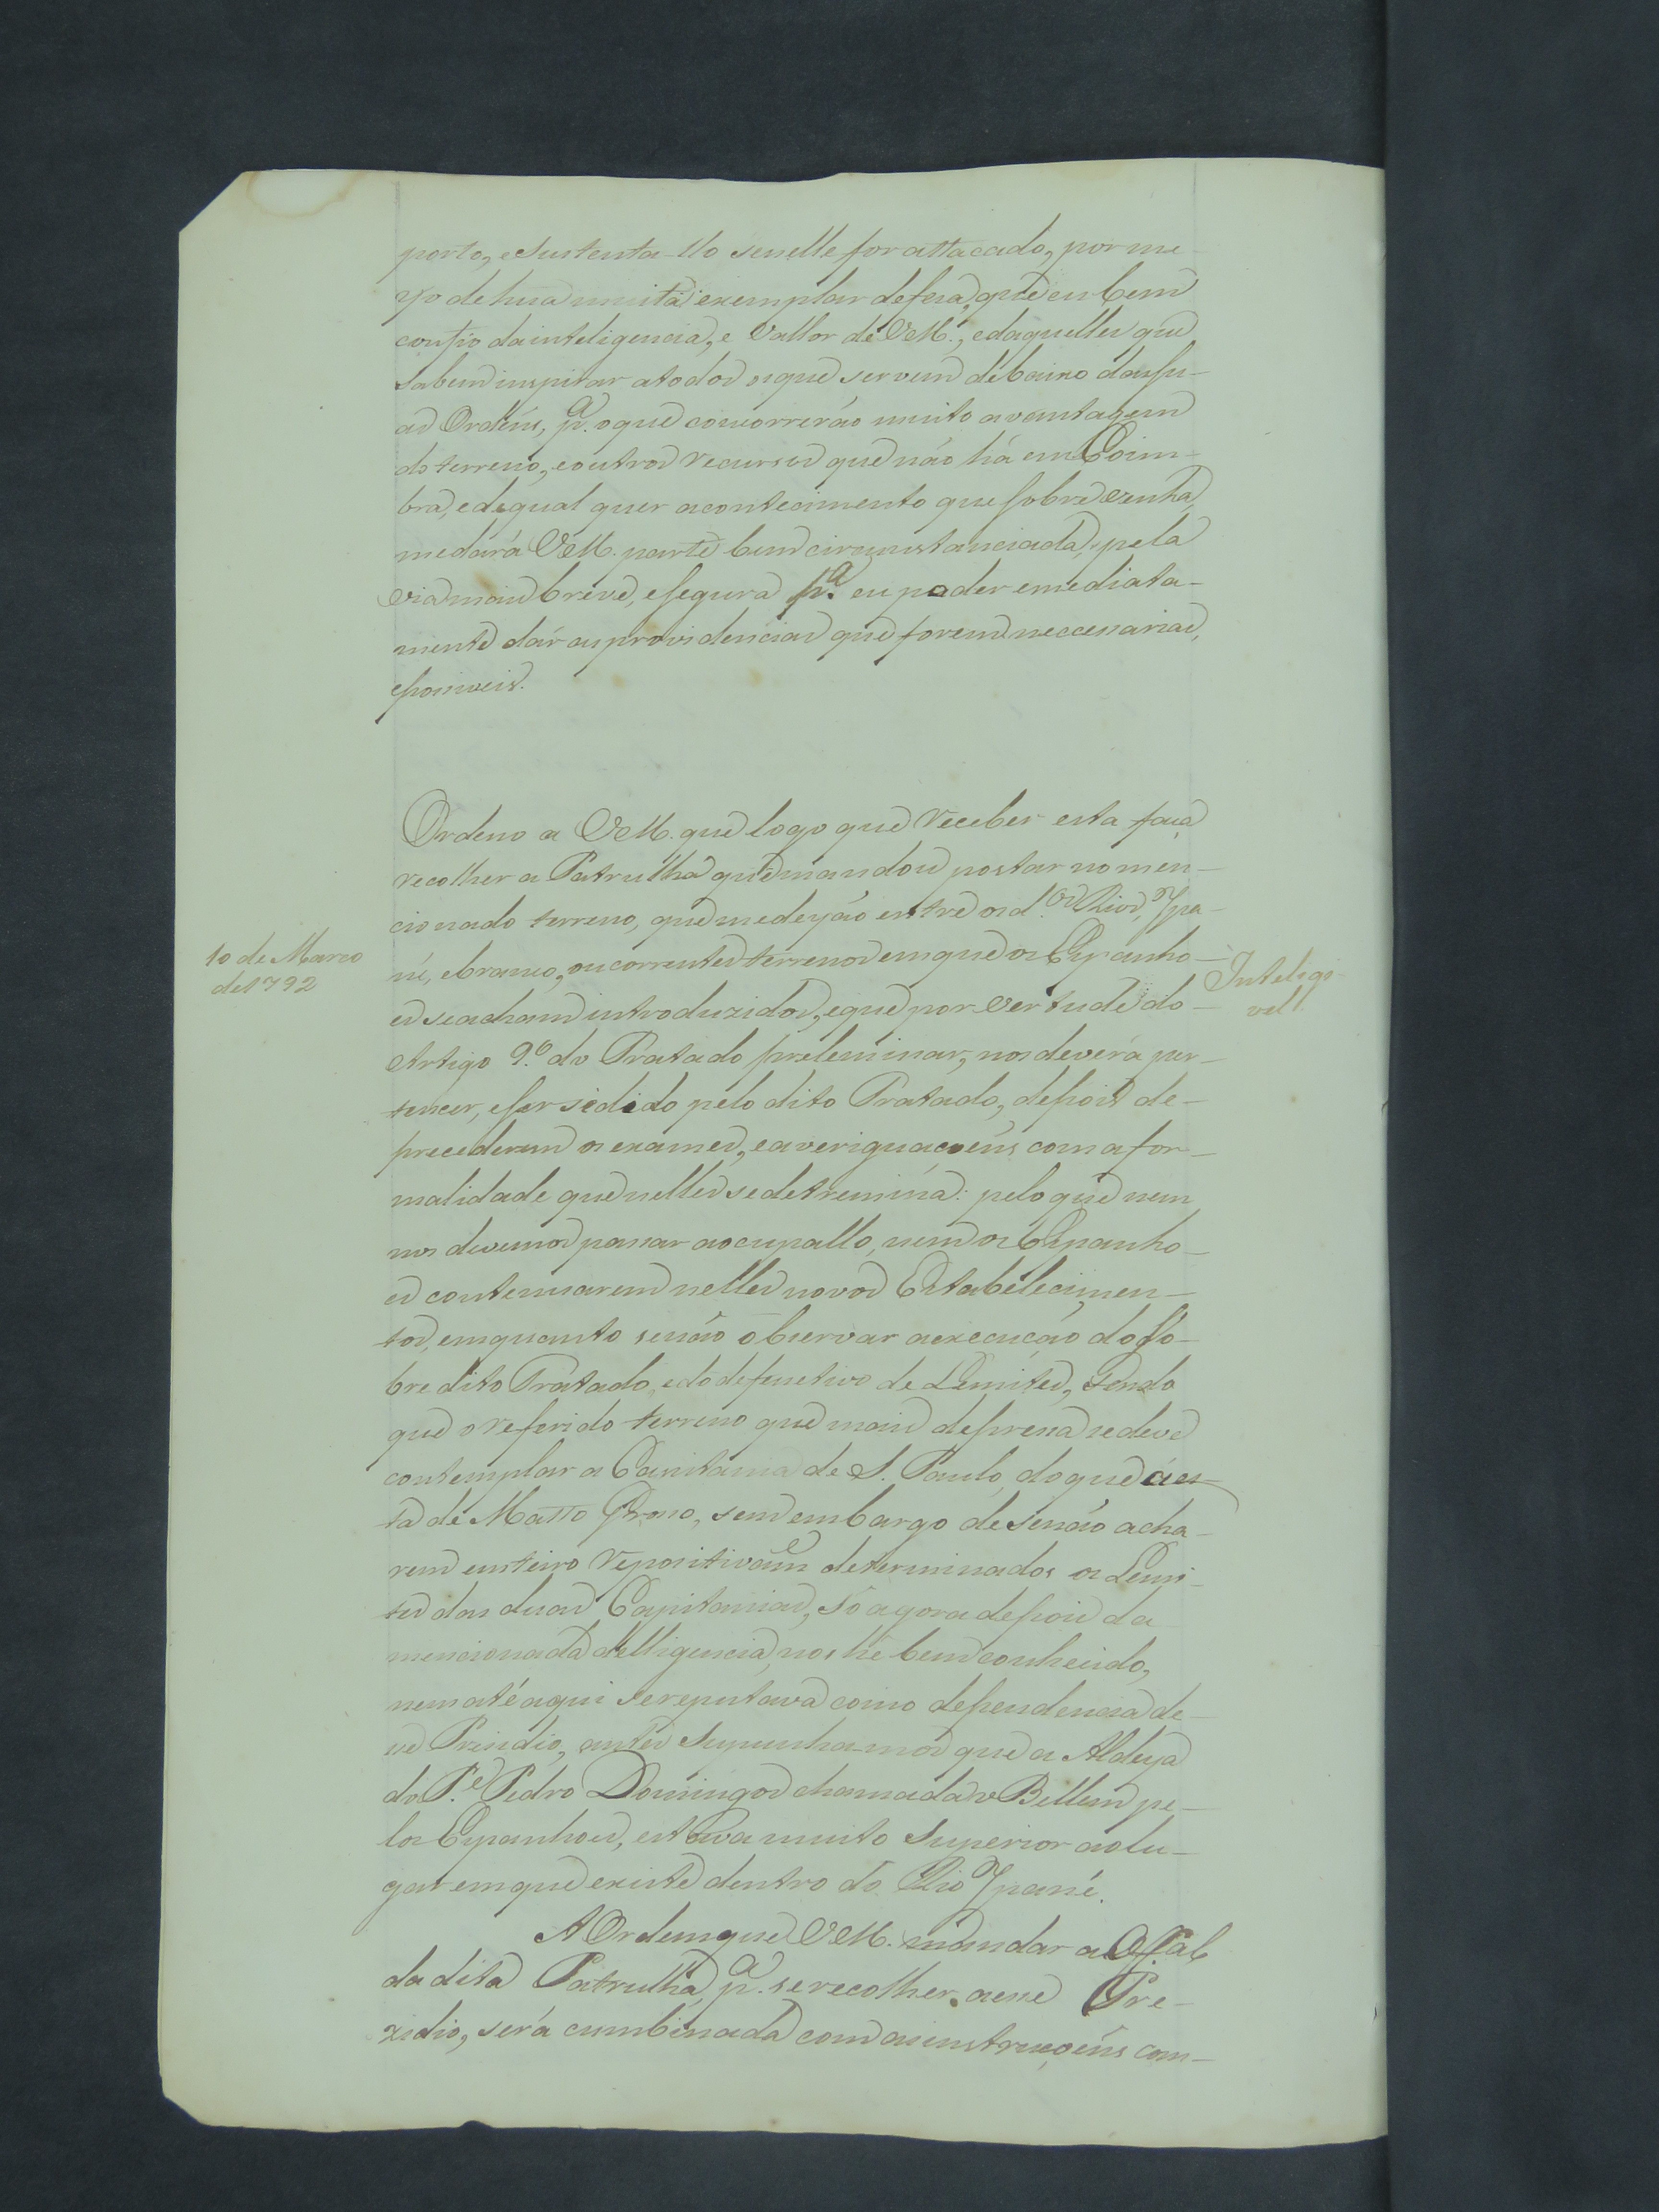 porto, e Sustenta-llo se nelle for attacado, por me-
yo de hua muita exemplar defeza, que eu bem
confio da inteligencia, e Vallor de VM., e daquelles que
Sabem inspirar a todos os que servem debaixo das su-
as Ordens, p.a o que concorrerão muito a vantagem
do terreno, e outros recursos que não há em Coim-
bra, e de qual quer acontecimento que sobrevenha,
me dará VM. parte bem circunstanciada, pela
via mais breve, e segura p.a eu poder emediata-
mente dár as providencias que forem neccessarias,
e possiveis.
Ordeno a VM. que logo que receber esta faça
recolher a Patrulha que mandou postar no men-
cionado terreno, que medeyão entre os d.os Rios, Ypa-
né, e branco, ou correntes terrenos em que os Espanho-
es se acham introduzidos, e que por vertude do
Artigo 9.o do Tratado preleminar, nos deverá per-
tencer, e ser sedido pelo dito Tratado, depois de
precederem os exames, e averiguaçoens com a for-
malidade que nelles se detremina: pelo que nem
nos devemos passar a ocupallo, nem os Espanho-
es contenuarem nelles novos Estabelecimen-
tos, emquanto se não observar a execução do so-
bre dito Tratado, e do defenetivo de Lemites, Sendo
que o referido terreno que mais depressa se deve
contemplar a Capitania de S. Paulo, do que a es-
ta de Matto Grosso, sem embargo de se não acha-
rem enteiro e positivam.e determinados os Lemi-
tes das duas Capitanias, só agora depois da
mencionada delligencia, nos hé bem conhecido,
nem até aqui se reputava como dependencia de-
se Prezidio, antes Supunha-mos que a Aldeya
do P.e Pedro Domingos chamada Bellem pe-
los Espanhoes, estava muito Superior ao lu-
gar em que existe dentro do Rio Ypané.
A Ordem que VM. mandar ao Of.al
da dita Patrulha, p.a se recolher a esse Pre-
zidio, será cumbinada com as instruçoens com-
10 de Março
de 1792
Inteligi-
vel